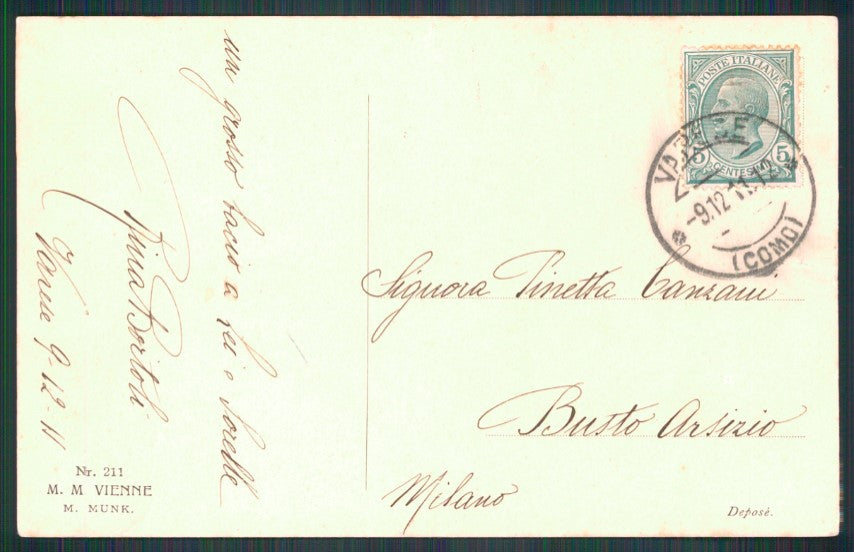 un grosso bacio a Lei e Sorelle
Bortoli
Varese 9-12-11
Nr. 211
M. M VIENNE
M. MUNK.
POSTE ITALIANE
5 5
CENTESIMI
VARESE
-9.12.11.12
(COMO)
Signora Pinetta Canzani
Busto Arsizio
Milano
Deposé.